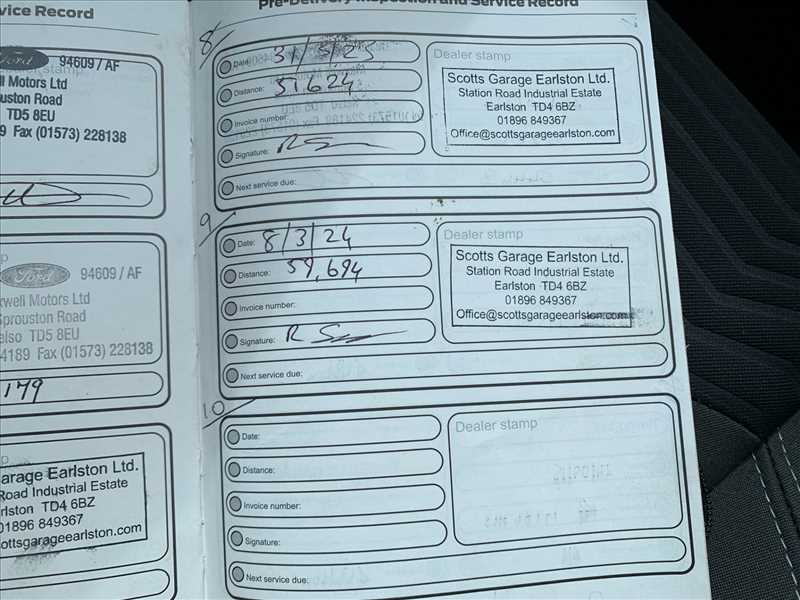 vice Record
Ford 94609 / AF
ll Motors Ltd
ouston Road
TD5 8EU
9 Fax (01573) 228138
Ford 94609 / AF
rwell Motors Ltd
Sprouston Road
elso TD5 8EU
4189 Fax (01573) 228138
179
arage Earlston Ltd.
Road Industrial Estate
rlston TD4 6BZ
01896 849367
ottsgarageearlston.com
Pre-Delivery Inspection and Service Record
8
Date: 31/5/23
Distance: 51,624
Invoice number:
Signature:
Next service due:
Dealer stamp
Scotts Garage Earlston Ltd.
Station Road Industrial Estate
Earlston TD4 6BZ
01896 849367
Office@scottsgarageearlston.com
9
Date: 8/3/24
Distance: 59,694
Invoice number:
Signature: R
Next service due:
Dealer stamp
Scotts Garage Earlston Ltd.
Station Road Industrial Estate
Earlston TD4 6BZ
01896 849367
Office@scottsgarageearlston.com
10
Date:
Distance:
Invoice number:
Signature:
Next service due:
Dealer stamp